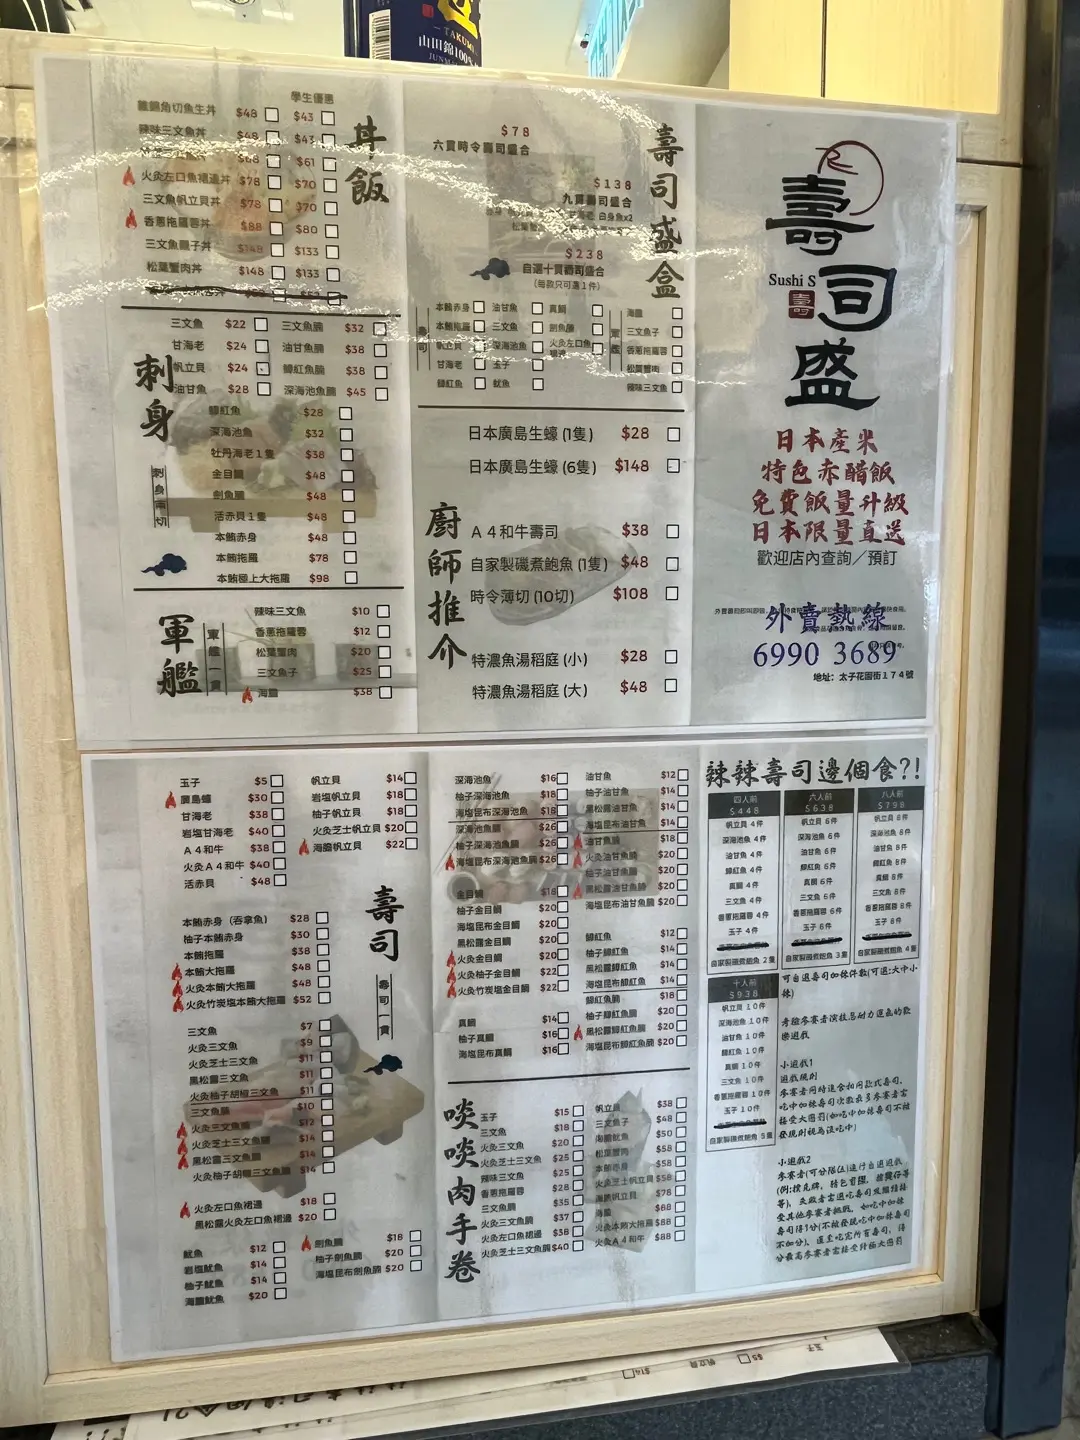 TAKUMI
山田錦100%
學生優惠
雜錦角切魚生丼 $48 $43
辣味三文魚丼 $48 $43
$68 $61
火灸左口魚裙邊丼 $78 $70
三文魚帆立貝丼 $78 $70
香蔥拖羅蓉丼 $88 $80
三文魚親子丼 $148 $133
松葉蟹肉丼 $148 $133
丼飯
刺身
三文魚 $22
甘海老 $24
帆立貝 $24
油甘魚 $28
三文魚腩 $32
油甘魚腩 $38
鰤紅魚腩 $38
深海池魚腩 $45
鰤紅魚 $28
深海池魚 $32
牡丹海老1隻 $38
金目鯛 $48
劍魚腩 $48
活赤貝1隻 $48
本鮪赤身 $48
本鮪拖羅 $78
本鮪極上大拖羅 $98
刺身兩切
軍艦
軍艦一貫
辣味三文魚 $10
香蔥拖羅蓉 $12
松葉蟹肉 $20
三文魚子 $25
海膽 $38
壽司盛盒
$78
六貫時令壽司盛合
$138
九貫壽司盛合
白身魚x2
$238
自選十貫壽司盛合
(每款只可選1件)
壽司
本鮪赤身
本鮪拖羅
帆立貝
甘海老
鰤紅魚
油甘魚
三文魚
深海池魚
玉子
魷魚
真鯛
劍魚腩
火灸左口魚裙邊
軍艦
海膽
三文魚子
香蔥拖羅蓉
松葉蟹肉
辣味三文魚
日本廣島生蠔 (1隻) $28
日本廣島生蠔 (6隻) $148
廚師推介
A4和牛壽司 $38
自家製磯煮鮑魚 (1隻) $48
時令薄切 (10切) $108
特濃魚湯稻庭 (小) $28
特濃魚湯稻庭 (大) $48
壽司盛
Sushi S
日本產米
特色赤醋飯
免費飯量升級
日本限量直送
歡迎店內查詢／預訂
外賣熱線
6990 3689
地址：太子花園街174號
玉子 $5
廣島蠔 $30
甘海老 $38
岩塩甘海老 $40
A4和牛 $38
火灸A4和牛 $40
活赤貝 $48
帆立貝 $14
岩塩帆立貝 $18
柚子帆立貝 $18
火灸芝士帆立貝 $20
海膽帆立貝 $22
壽司
壽司一貫
本鮪赤身 (吞拿魚) $28
柚子本鮪赤身 $30
本鮪拖羅 $38
本鮪大拖羅 $48
火灸本鮪大拖羅 $48
火灸竹炭塩本鮪大拖羅 $52
三文魚 $7
火灸三文魚 $9
火灸芝士三文魚 $11
黑松露三文魚 $11
火灸柚子胡椒三文魚 $11
三文魚腩 $10
火灸三文魚腩 $12
火灸芝士三文魚腩 $14
黑松露三文魚腩 $14
火灸柚子胡椒三文魚腩 $14
火灸左口魚裙邊 $18
黑松露火灸左口魚裙邊 $20
魷魚 $12
岩塩魷魚 $14
柚子魷魚 $14
海膽魷魚 $20
劍魚腩 $18
柚子劍魚腩 $20
海塩昆布劍魚腩 $20
深海池魚 $16
柚子深海池魚 $18
海塩昆布深海池魚 $18
深海池魚腩 $26
柚子深海池魚腩 $26
海塩昆布深海池魚腩 $26
金目鯛 $18
柚子金目鯛 $20
海塩昆布金目鯛 $20
黑松露金目鯛 $20
火灸金目鯛 $20
火灸柚子金目鯛 $22
火灸竹炭塩金目鯛 $22
真鯛 $14
柚子真鯛 $16
海塩昆布真鯛 $16
油甘魚 $12
柚子油甘魚 $14
黑松露油甘魚 $14
海塩昆布油甘魚 $14
油甘魚腩 $18
火灸油甘魚腩 $20
柚子油甘魚腩 $20
黑松露油甘魚腩 $20
海塩昆布油甘魚腩 $20
鰤紅魚 $12
柚子鰤紅魚 $14
黑松露鰤紅魚 $14
海塩昆布鰤紅魚 $14
鰤紅魚腩 $18
柚子鰤紅魚腩 $20
黑松露鰤紅魚腩 $20
海塩昆布鰤紅魚腩 $20
啖啖肉手卷
玉子 $15
三文魚 $18
火灸三文魚 $20
火灸芝士三文魚 $25
辣味三文魚 $25
香蔥拖羅蓉 $28
三文魚腩 $35
火灸三文魚腩 $37
火灸左口魚裙邊 $38
火灸芝士三文魚腩 $40
帆立貝 $38
三文魚子 $48
海膽魷魚 $50
松葉蟹肉 $58
本鮪赤身 $58
火灸芝士帆立貝 $58
海膽帆立貝 $78
海膽 $88
火灸本鮪大拖羅 $88
火灸A4和牛 $88
辣辣壽司邊個食?!
四人前
$448
帆立貝 4件
深海池魚 4件
油甘魚 4件
鰤紅魚 4件
真鯛 4件
三文魚 4件
香蔥拖羅蓉 4件
玉子 4件
自家製磯煮鮑魚 2隻
六人前
$638
帆立貝 6件
深海池魚 6件
油甘魚 6件
鰤紅魚 6件
真鯛 6件
三文魚 6件
香蔥拖羅蓉 6件
玉子 6件
自家製磯煮鮑魚 3隻
八人前
$798
帆立貝 8件
深海池魚 8件
油甘魚 8件
鰤紅魚 8件
真鯛 8件
三文魚 8件
香蔥拖羅蓉 8件
玉子 8件
自家製磯煮鮑魚 4隻
十人前
$938
帆立貝 10件
深海池魚 10件
油甘魚 10件
鰤紅魚 10件
真鯛 10件
三文魚 10件
香蔥拖羅蓉 10件
玉子 10件
自家製磯煮鮑魚 5隻
可自選壽司加辣件數(可選:大中小
辣)
考驗參賽者演技忍耐力運氣的歡
樂遊戲
小遊戲1
遊戲規則
參賽者同時進食相同款式壽司,
吃中加辣壽司次數最多參賽者需
接受大圈罰(如吃中加辣壽司不被
發現則視為沒吃中)
小遊戲2